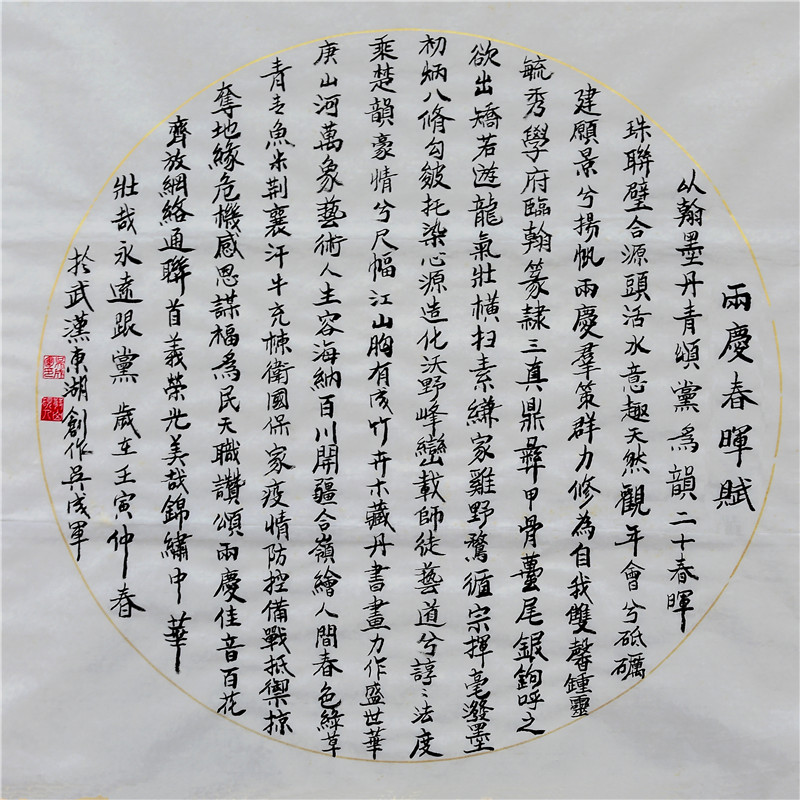 兩慶春暉賦
以翰墨丹青頌黨為韻二十春暉
珠聯璧合源頭活水意趣天然觀年會兮砥礪
建願景兮揚帆兩慶羣策群力修為自我雙馨鍾靈
毓秀學府臨翰篆隸三真鼎彝甲骨薑尾銀鉤呼之
欲出矯若遊龍氣壯橫扫素縑家雞野鶩循宗揮毫潑墨
初炳八脩勾皴托染心源造化沃野峰巒載師徒藝道兮諄〻法度
乘楚韻豪情兮尺幅江山胸有成竹卉木藏丹書畫力作盛世華
庚山河萬象藝術人生容海納百川開疆合嶺繪人間春色綠草
青青魚米荆襄汗牛充棟衛國保家疫情防控備戰抵禦掠
奪地緣危機感恩謀福為民天職讚頌兩慶佳音百花
齊放網絡通聯首義榮光美哉錦繡中華
壯哉永遠跟黨 歲在壬寅仲春
於武漢東湖創作吳成軍